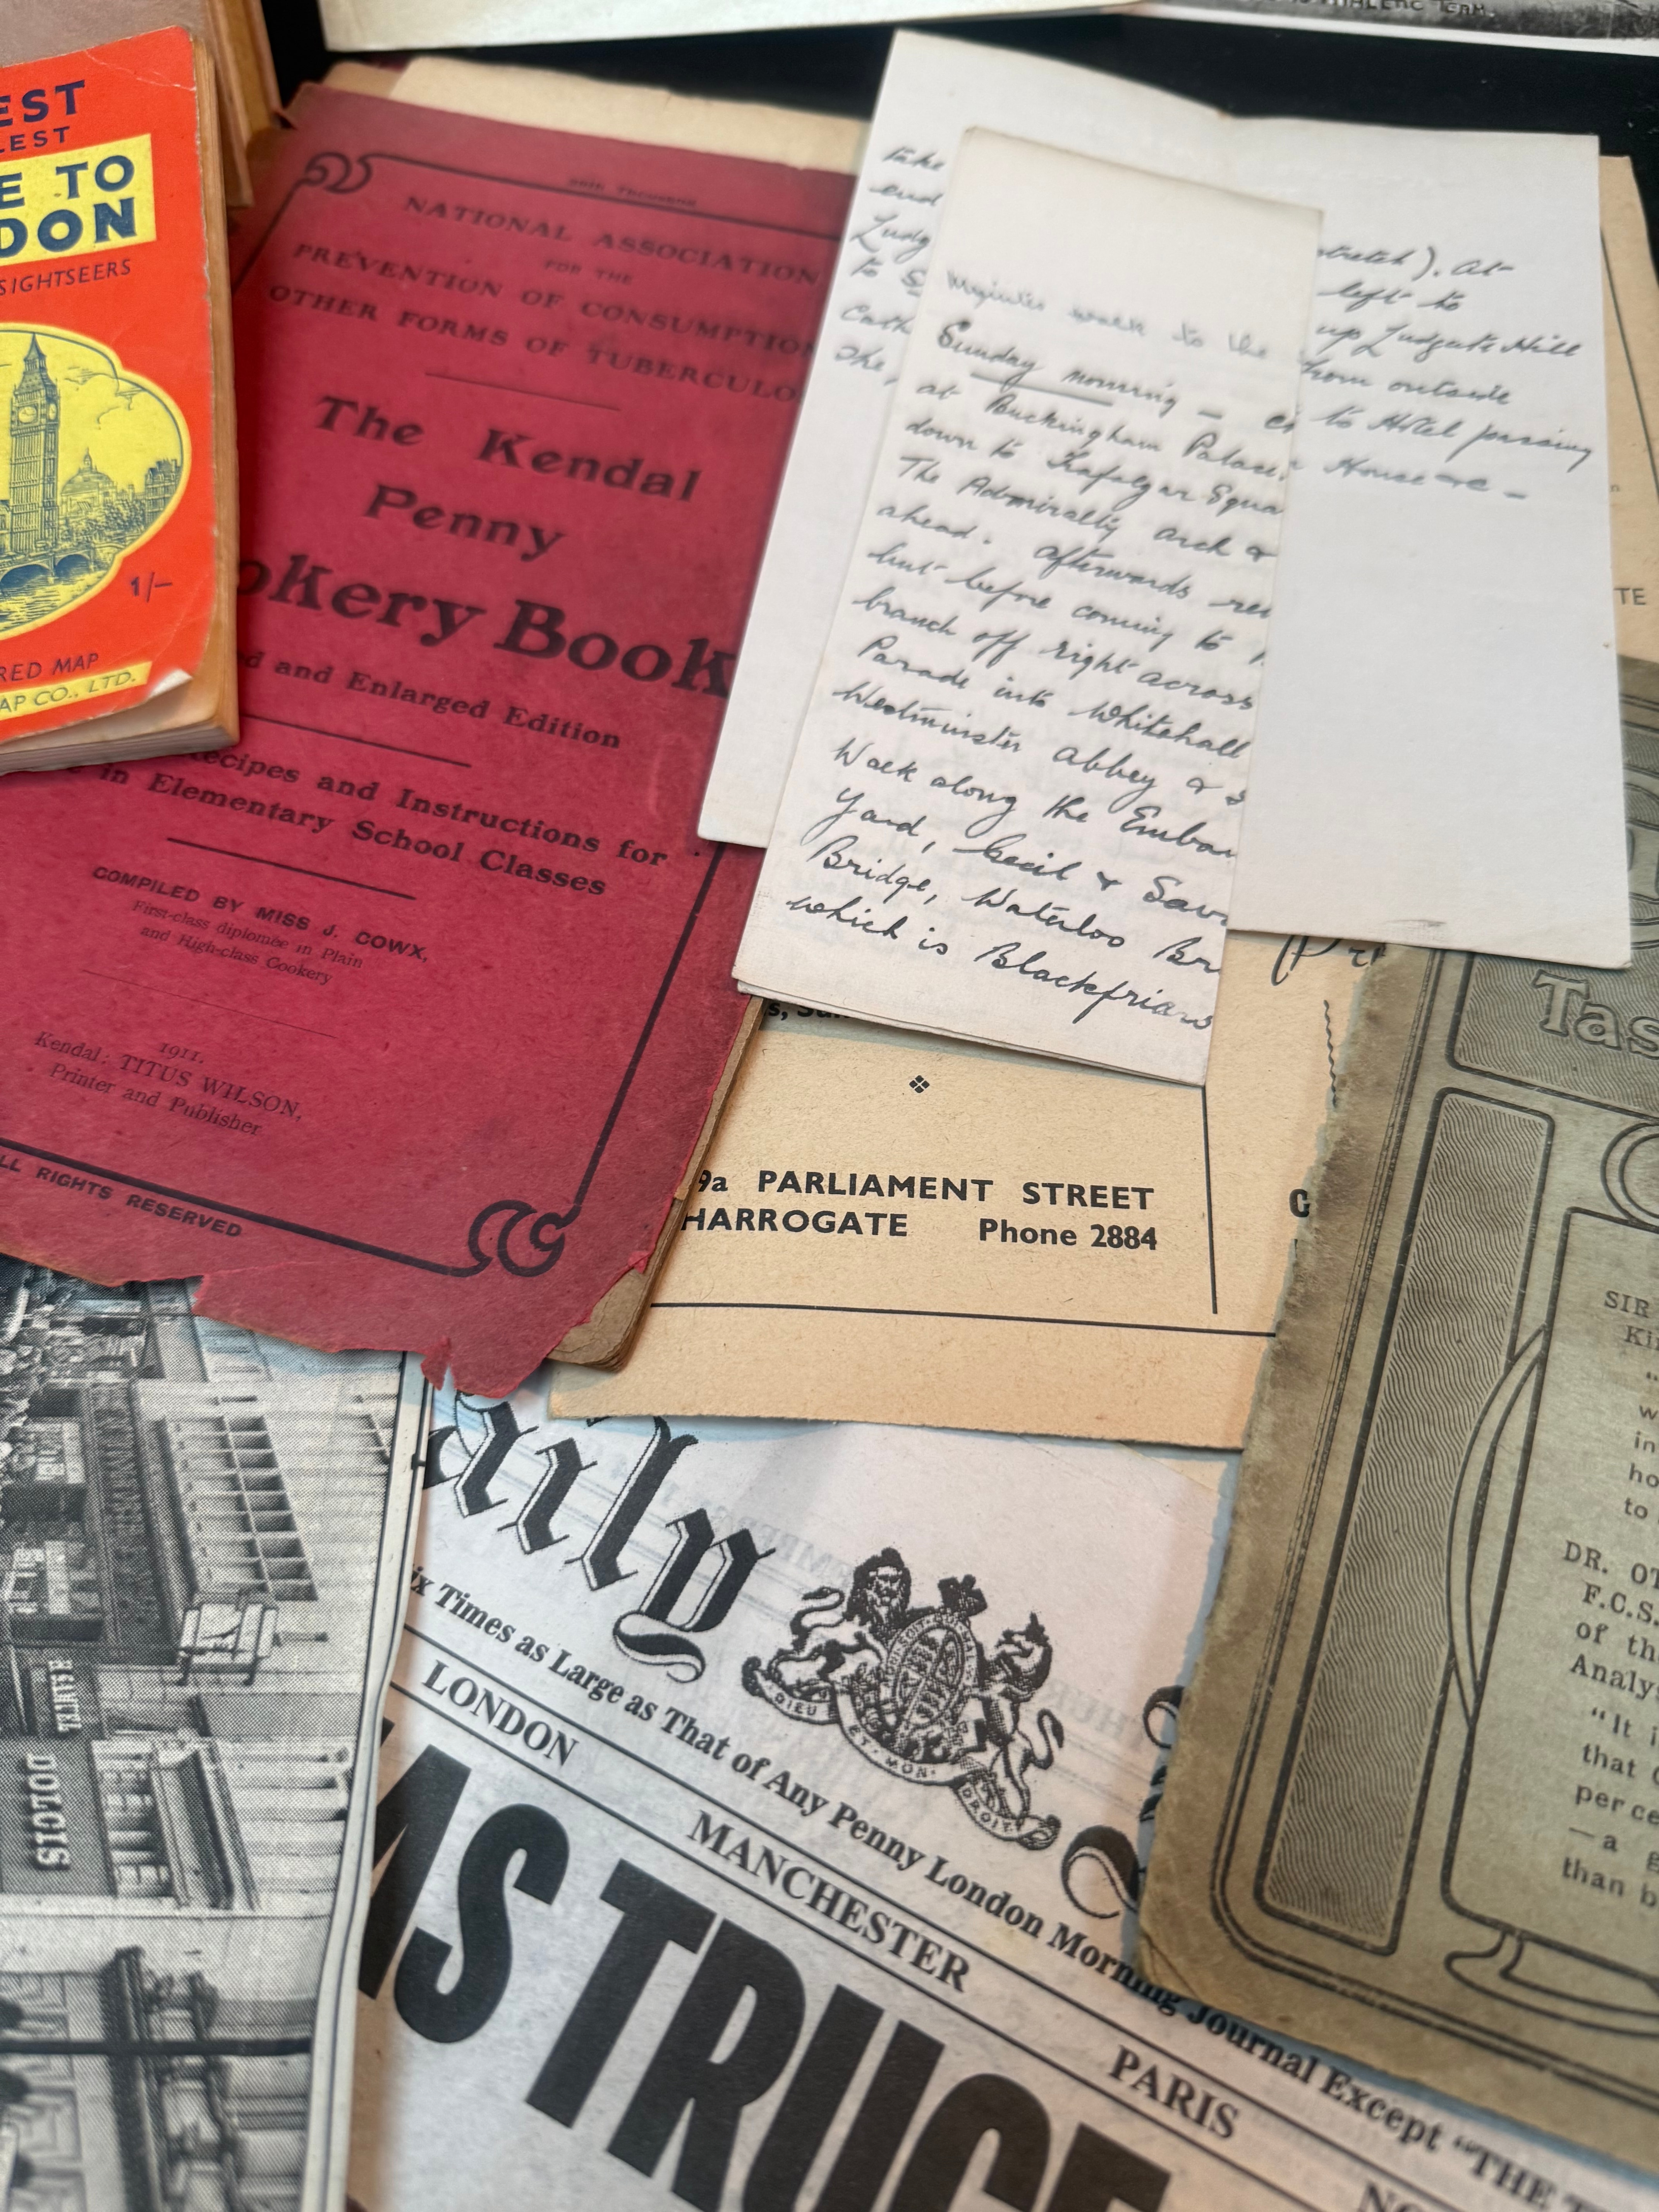 EST
LEST
E TO
DON
SIGHTSEERS
1/-
RED MAP
AP CO., LTD.
NATIONAL ASSOCIATION
FOR THE
PREVENTION OF CONSUMPTION
OTHER FORMS OF TUBERCULO
The Kendal
Penny
okery Book
ed and Enlarged Edition
Recipes and Instructions for
in Elementary School Classes
COMPILED BY MISS J. COWX,
First-class diplomee in Plain
and High-class Cookery
1911.
Kendal: TITUS WILSON,
Printer and Publisher
LL RIGHTS RESERVED
take
end
Ludg
to S
Cath
The,
stretch). At
left to
up Ludgate Hill
from outside
to Hotel passing
House &c -
walk to the
Sunday morning -
at Buckingham Palace.
down to Trafalgar Squa
The Admiralty Arch &
ahead. Afterwards re
but before coming to
branch off right across
Parade into Whitehall
Westminster Abbey & S
Walk along the Emba
Yard, Cecil & Sav
Bridge, Waterloo Br
which is Blackfriars
TE
9a PARLIAMENT STREET
HARROGATE Phone 2884
Tas
SIR
Ki
"
w
in
ho
to
DR. OT
F.C.S.
of th
Analy
"It i
that
per ce
—a g
than b
DOLCIS
aily
ix Times as Large as That of Any Penny London Morning Journal Except "THE T
DIEU ET MON DROIT
LONDON
MANCHESTER
PARIS
AS TRUCE
TEAM.